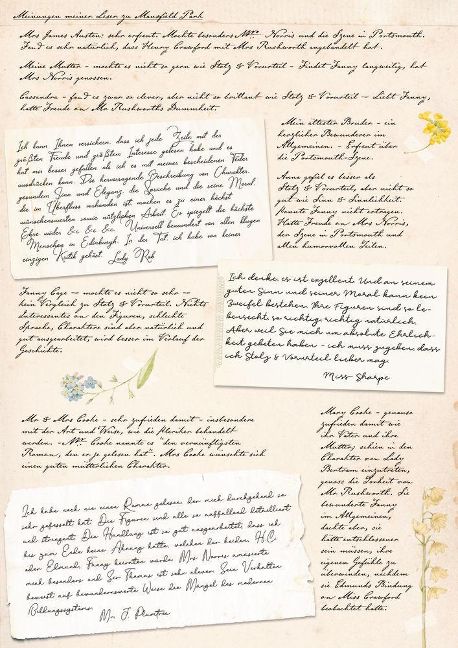 Meinungen meiner Leser zu Mansfield Park
Mrs James Austen: sehr erfreut. Mochte besonders Mrs. Norris und die Szene in Portsmouth.
Fand es sehr natürlich, dass Henry Crawford mit Mrs Rushworth angebändelt hat.
Meine Mutter - mochte es nicht so gern wie Stolz & Vorurteil - Findet Fanny langweilig, hat
Mrs Norris genossen.
Cassandra - fand es zwar so clever, aber nicht so brillant wie Stolz & Vorurteil - Liebt Fanny,
hatte Freude an Mr Rushworths Dummheit.
Ich kann Ihnen versichern, dass ich jede Zeile mit der
größten Freude und größtem Interesse gelesen habe und es
hat mir besser gefallen als ich es mit meiner bescheidenen Feder
ausdrücken kann. Die hervorragende Beschreibung von Charakter,
gesundem Sinn und Eleganz, die Sprache und die reine Moral,
die im Überfluss vorhanden ist, machen es zu einer höchst
wünschenswerten sowie nützlichen Arbeit. Es spiegelt die höchste
Ehre wider &c. &c. &c. Universell bewundert von allen klugen
Menschen in Edinburgh. In der Tat, ich habe von keiner
einzigen Kritik gehört. Lady Rob
Mein ältester Bruder - ein
herzlicher Bewunderer im
Allgemeinen. - Erfreut über
die Portsmouth-Szene.
Anna gefiel es besser als
Stolz & Vorurteil, aber nicht so
gut wie Sinn & Sinnlichkeit.
Konnte Fanny nicht ertragen.
Hatte Freude an Mrs Norris,
der Szene in Portsmouth und
den humorvollen Teilen.
Fanny Cage - mochte es nicht so sehr -
kein Vergleich zu Stolz & Vorurteil. Nichts
Interessantes an den Figuren, schlichte
Sprache, Charaktere sind aber natürlich und
gut ausgearbeitet, wird besser im Verlauf der
Geschichte.
Ich denke es ist exzellent. Und an seinem
guten Sinn und seiner Moral kann kein
Zweifel bestehen. Ihre Figuren sind so le-
bensecht, so richtig, richtig natürlich.
Aber weil Sie mich um absolute Ehrlich-
keit gebeten haben - ich muss zugeben, dass
ich Stolz & Vorurteil lieber mag.
Miss Sharpe
Mr & Mrs Cooke - sehr zufrieden damit - insbesondere
mit der Art und Weise, wie die Kleriker behandelt
werden. - Mr. Cooke nannte es "den vernünftigsten
Roman, den er je gelesen hat". Mrs Cooke wünschte sich
einen guten mütterlichen Charakter.
Mary Cooke - genauso
zufrieden damit wie
ihr Vater und ihre
Mutter, schien in den
Charakter von Lady
Bertram einzutreten,
genoss die Torheit von
Mr Rushworth. Sie
bewunderte Fanny
im Allgemeinen,
dachte aber, sie
hätte entschlossener
sein müssen, ihre
eigenen Gefühle zu
überwinden, nachdem
sie Edmunds Bindung
an Miss Crawford
beobachtet hatte.
Ich habe noch nie einen Roman gelesen, der mich durchgehend so
sehr gefesselt hat. Die Figuren sind alle so auffallend detailliert
und stringent. Die Handlung ist so gut ausgearbeitet, dass ich
bis zum Ende keine Ahnung hatte, welchen der beiden, H.C.
oder Edmund, Fanny heiraten würde. Mrs Norris amüsierte
mich besonders und Sir Thomas ist sehr clever. Sein Verhalten
beweist auf bewundernswerte Weise die Mängel des modernen
Bildungssystems.
Mr J. Plumtre